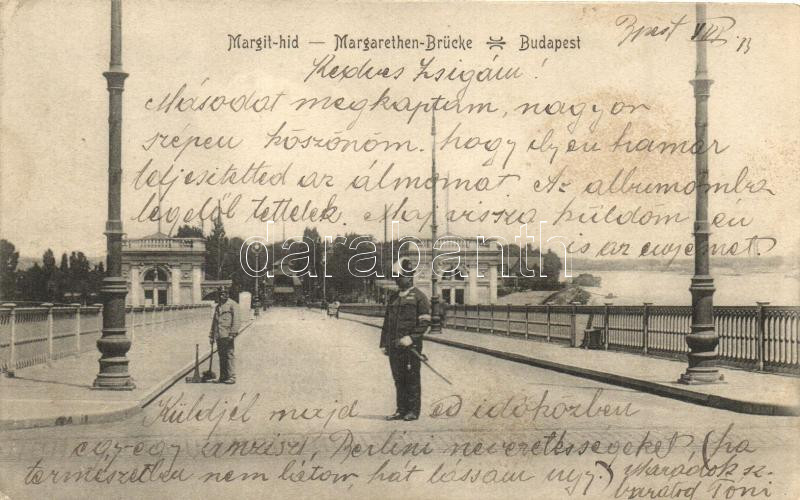 Margit-hid — Margarethen-Brücke Budapest
Bpest VIII/13
Kedves Zsigám!
Másodat megkaptam, nagyon
szépen köszönöm. hogy ilyen hamar
teljesitetted az álmomat Az albumomba
legelől tettelek. Majd vissza küldöm én
is az enyémet.
darabanth.com
Küldjél majd ed időközben
egy-egy amzixt, Berlini nevezetességeket, (ha
természetben nem látom, hát lássam úgy.) Maradok sz.
barátod Toni